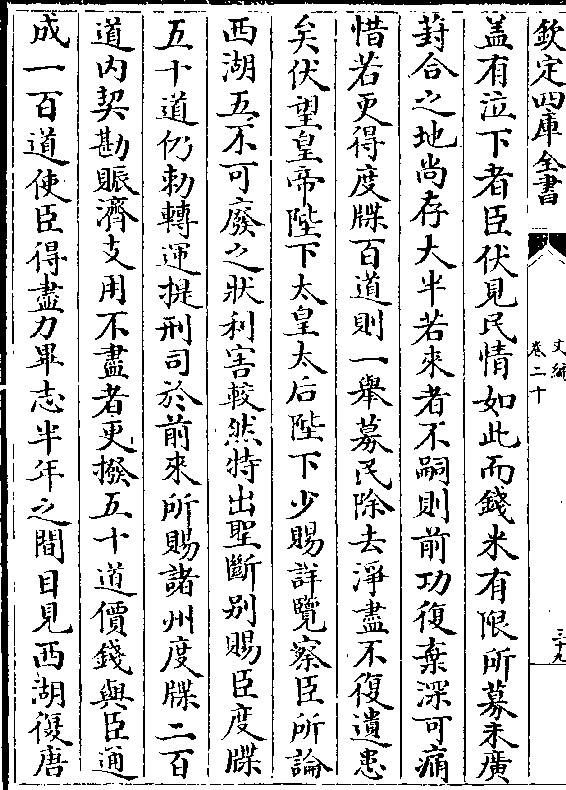 欽定四庫全書
文編
卷二十
三十九
蓋有泣下者臣伏見民情如此而錢米有限所募未廣
葑合之地尚存大半若來者不嗣則前功復棄深可痛
惜若更得度牒百道則一舉募民除去淨盡不復遺患
矣伏望皇帝陛下太皇太后陛下少賜詳覽察臣所論
西湖五不可廢之狀利害較然特出聖斷别賜臣度牒
五十道仍勅轉運提刑司於前來所賜諸州度牒二百
道内契勘賑濟支用不盡者更撥五十道價錢與臣通
成一百道使臣得盡力畢志半年之間目見西湖復唐